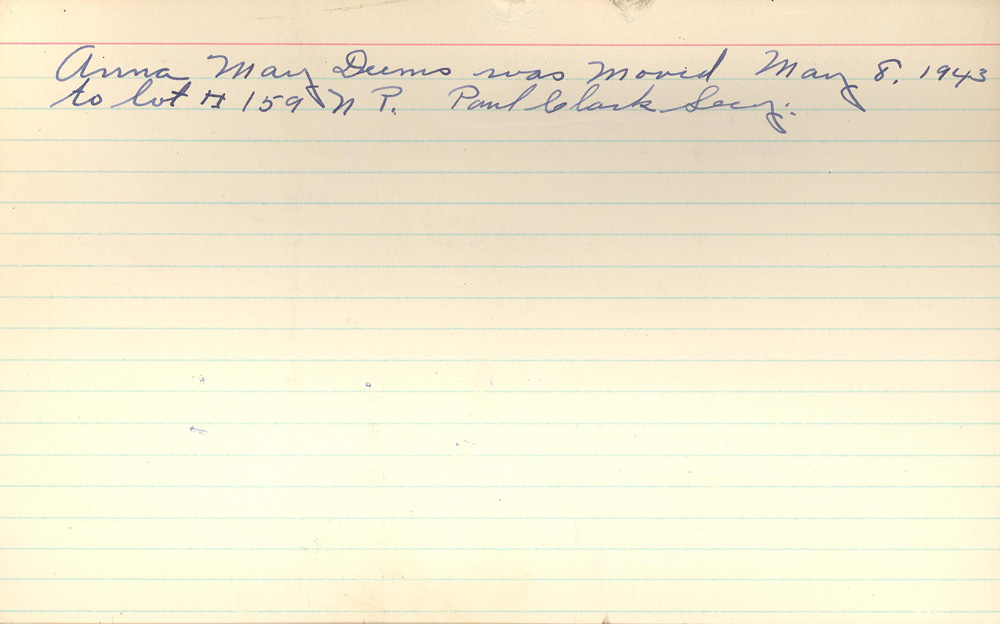 Anna May Deems was moved May 8, 1943
to lot # 159 N P. Paul Clark Secy.